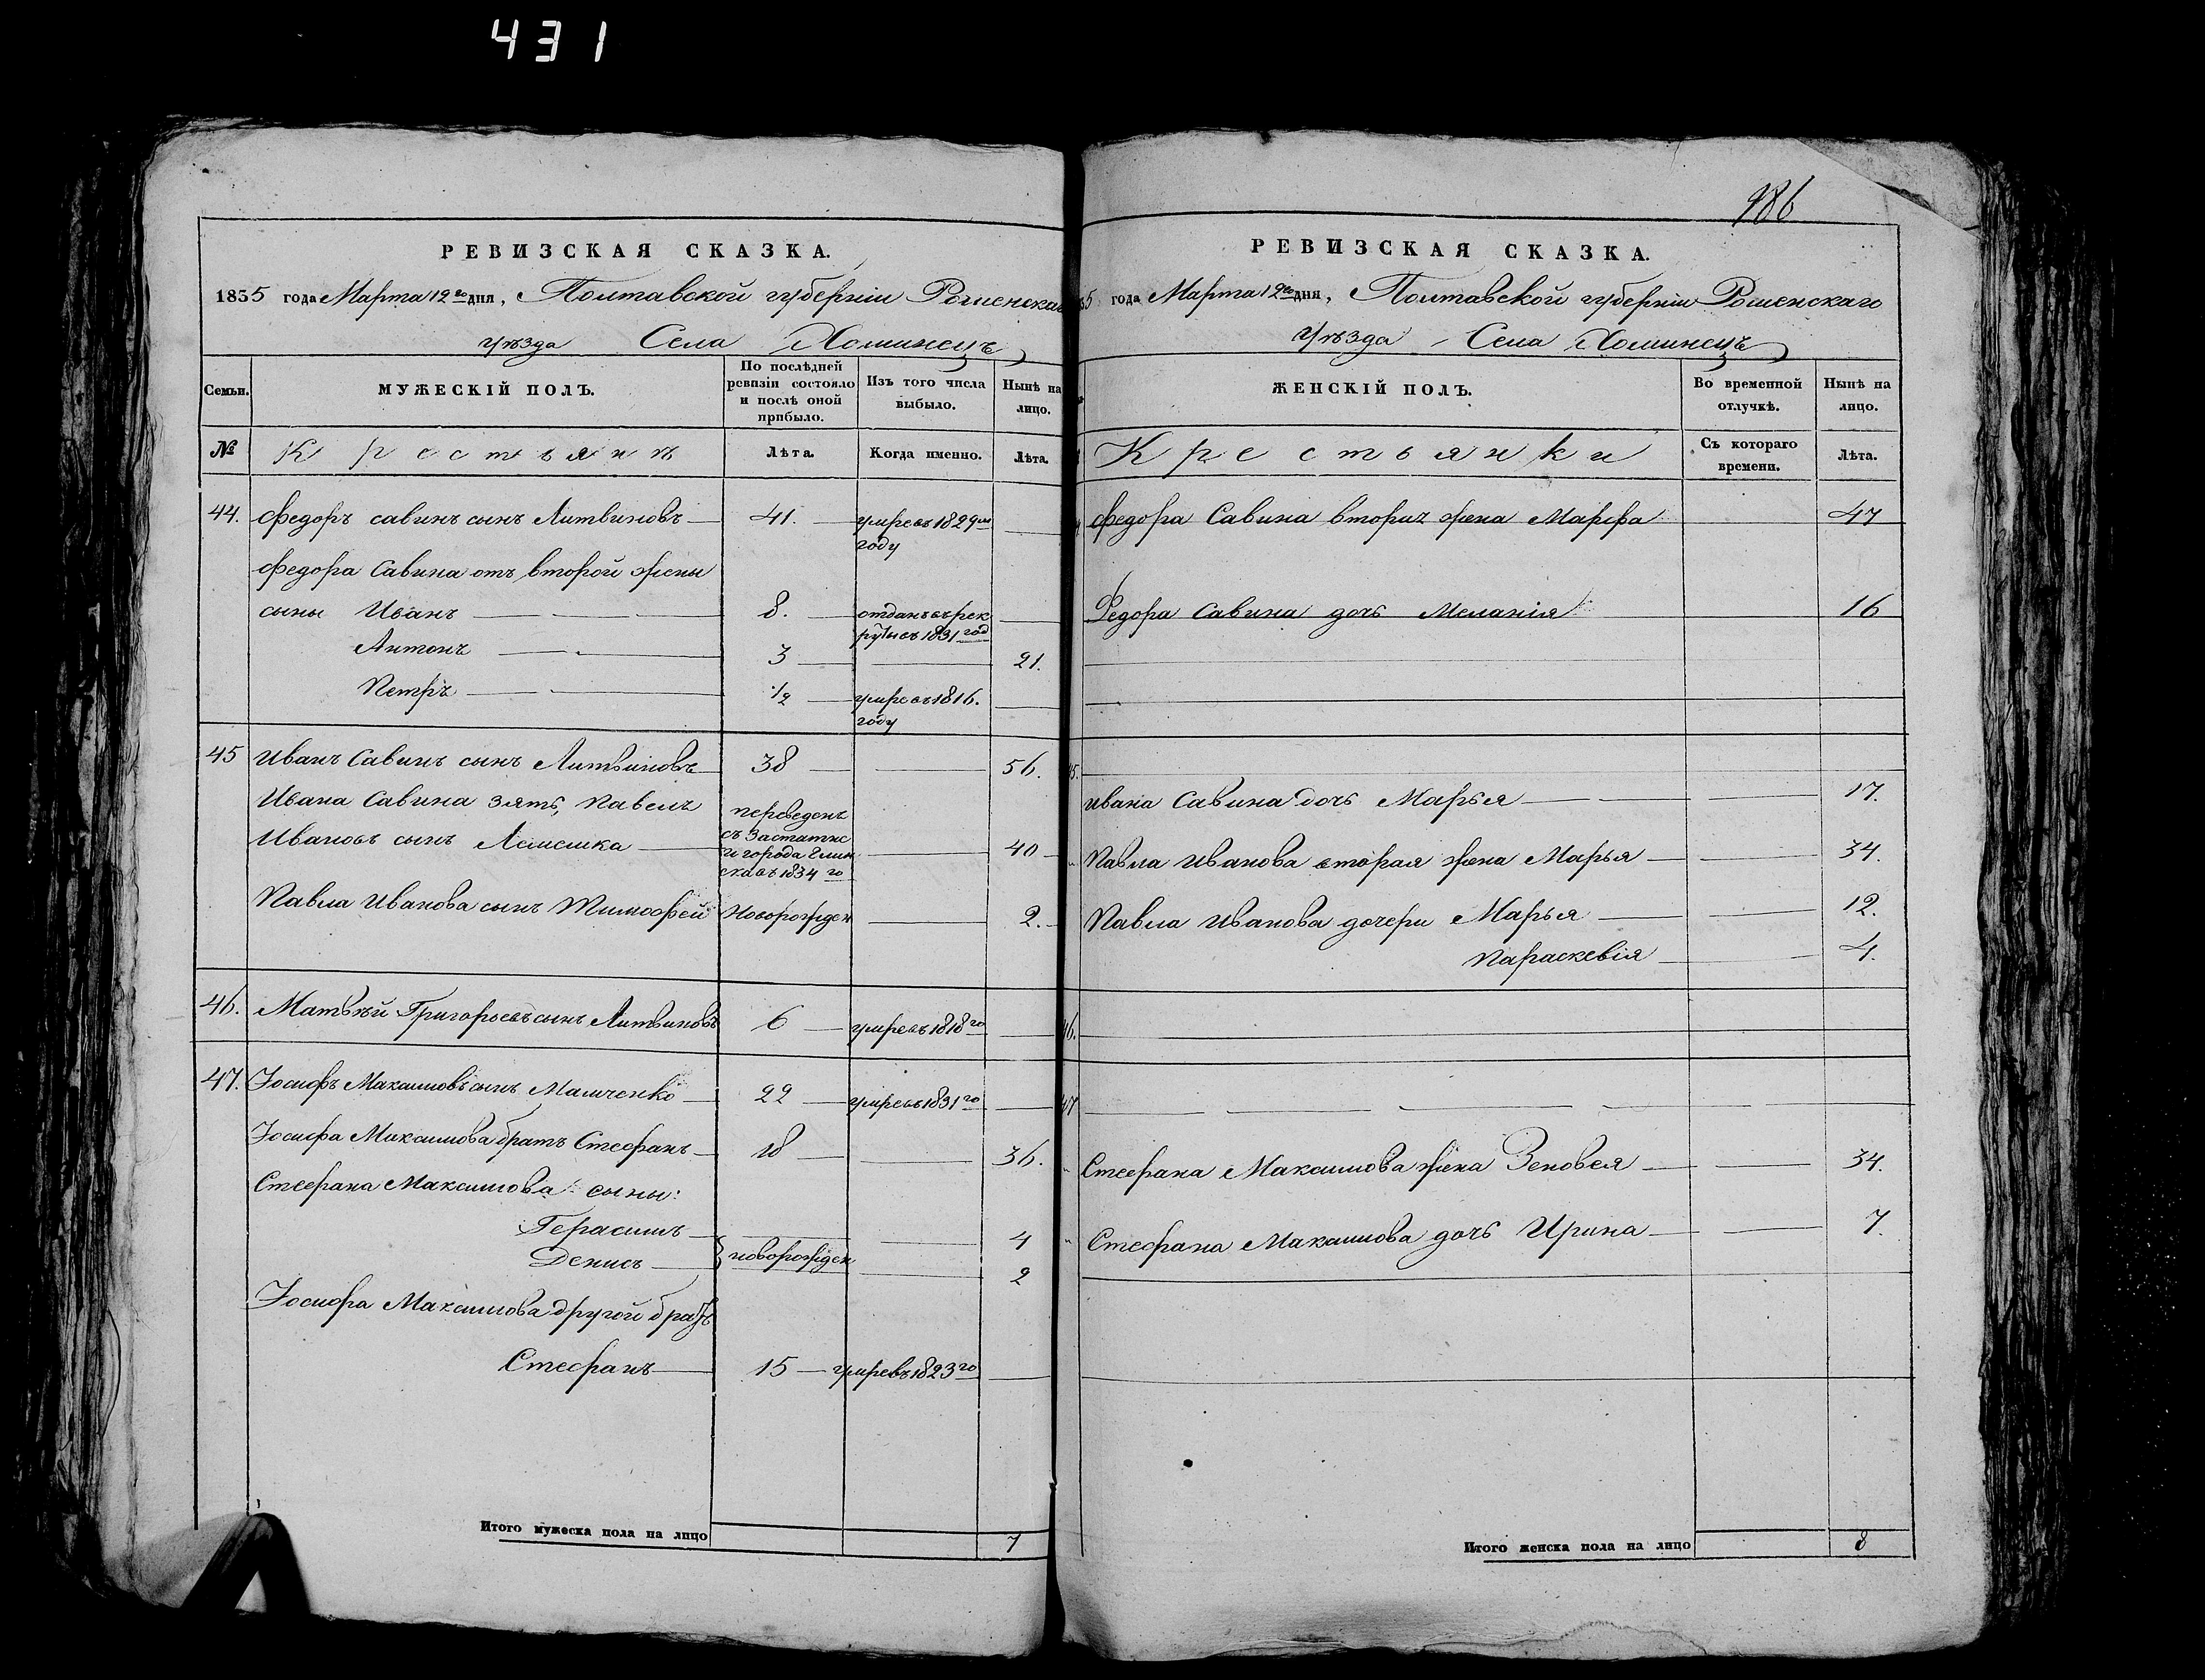 431
986
РЕВИЗСКАЯ СКАЗКА.
1835 года Марта 12го дня, Полтавской губерніи Роменскаго
уѣзда Села Хоминецъ
Семьи.
МУЖЕСКІЙ ПОЛЪ.
По послѣдней ревизіи состояло и послѣ оной прибыло.
Изъ того числа выбыло.
Нынѣ на лицо.
№
Крестьянъ
Лѣта.
Когда именно.
Лѣта.
44. Федоръ Савинъ сынъ Литвиновъ 41. умре въ 1829м
году
Федора Савина отъ второй жены
сыны Иванъ 8. отданъ въ рек
руты въ 1831 год
Антонъ 3 21.
Петръ 1/2 умре въ 1816.
году
45 Иванъ Савинъ сынъ Литвиновъ 38 56.
Ивана Савина зять, Павелъ переведенъ
Ивановъ сынъ съ
города
въ 1834 го 40
Павла Иванова сынъ Тимофей Новорожден 2.
46. Матвѣй Григорьевъ сынъ Литвиновъ 6 умре въ 1818 го
47. Іосифъ Максимовъ сынъ Мамченко 22 умре въ 1831 го
Іосифа Максимова братъ Стефанъ 18 36.
Стефана Максимова сыны:
Герасимъ 4
Денисъ новорожден 2
Іосифа Максимова другой братъ
Стефанъ 15 умре въ 1823 го
Итого мужеска пола на лицо 7
РЕВИЗСКАЯ СКАЗКА.
5 года Марта 12го дня, Полтавской губерніи Роменскаго
Уѣзда Села Хоминецъ
ЖЕНСКІЙ ПОЛЪ.
Во временной отлучкѣ.
Нынѣ на лицо.
Крестьянки
Съ котораго времени.
Лѣта.
Федора Савина вторая жена Марфа 47
Федора Савина дочь Меланія 16
45.
Ивана Савина дочь Марья 17.
Павла Иванова вторая жена Марья 34.
Павла Иванова дочери Марья 12.
Параскевія 4.
46.
47
Стефана Максимова жена Зеновея 34.
Стефана Максимова дочь Ирина 7.
Итого женска пола на лицо 8